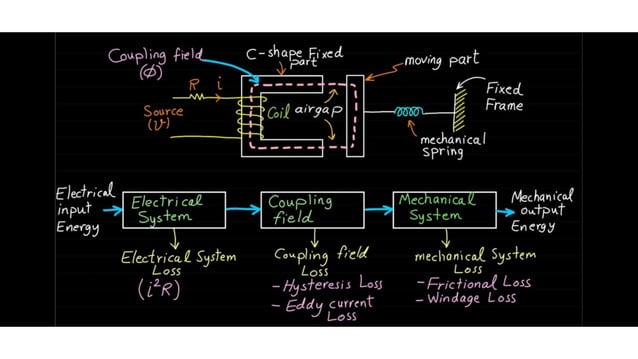 Coupling field
(Ø)
C-shape Fixed
part
moving part
R
i
Source
(v)
Coil
airgap
Fixed
Frame
mechanical
spring
Electrical
input
Energy
Electrical
System
Coupling
field
Mechanical
System
Mechanical
output
Energy
Electrical System
Loss
(i²R)
Coupling field
Loss
- Hysteresis Loss
- Eddy current
Loss
mechanical System
Loss
- Frictional Loss
- Windage Loss